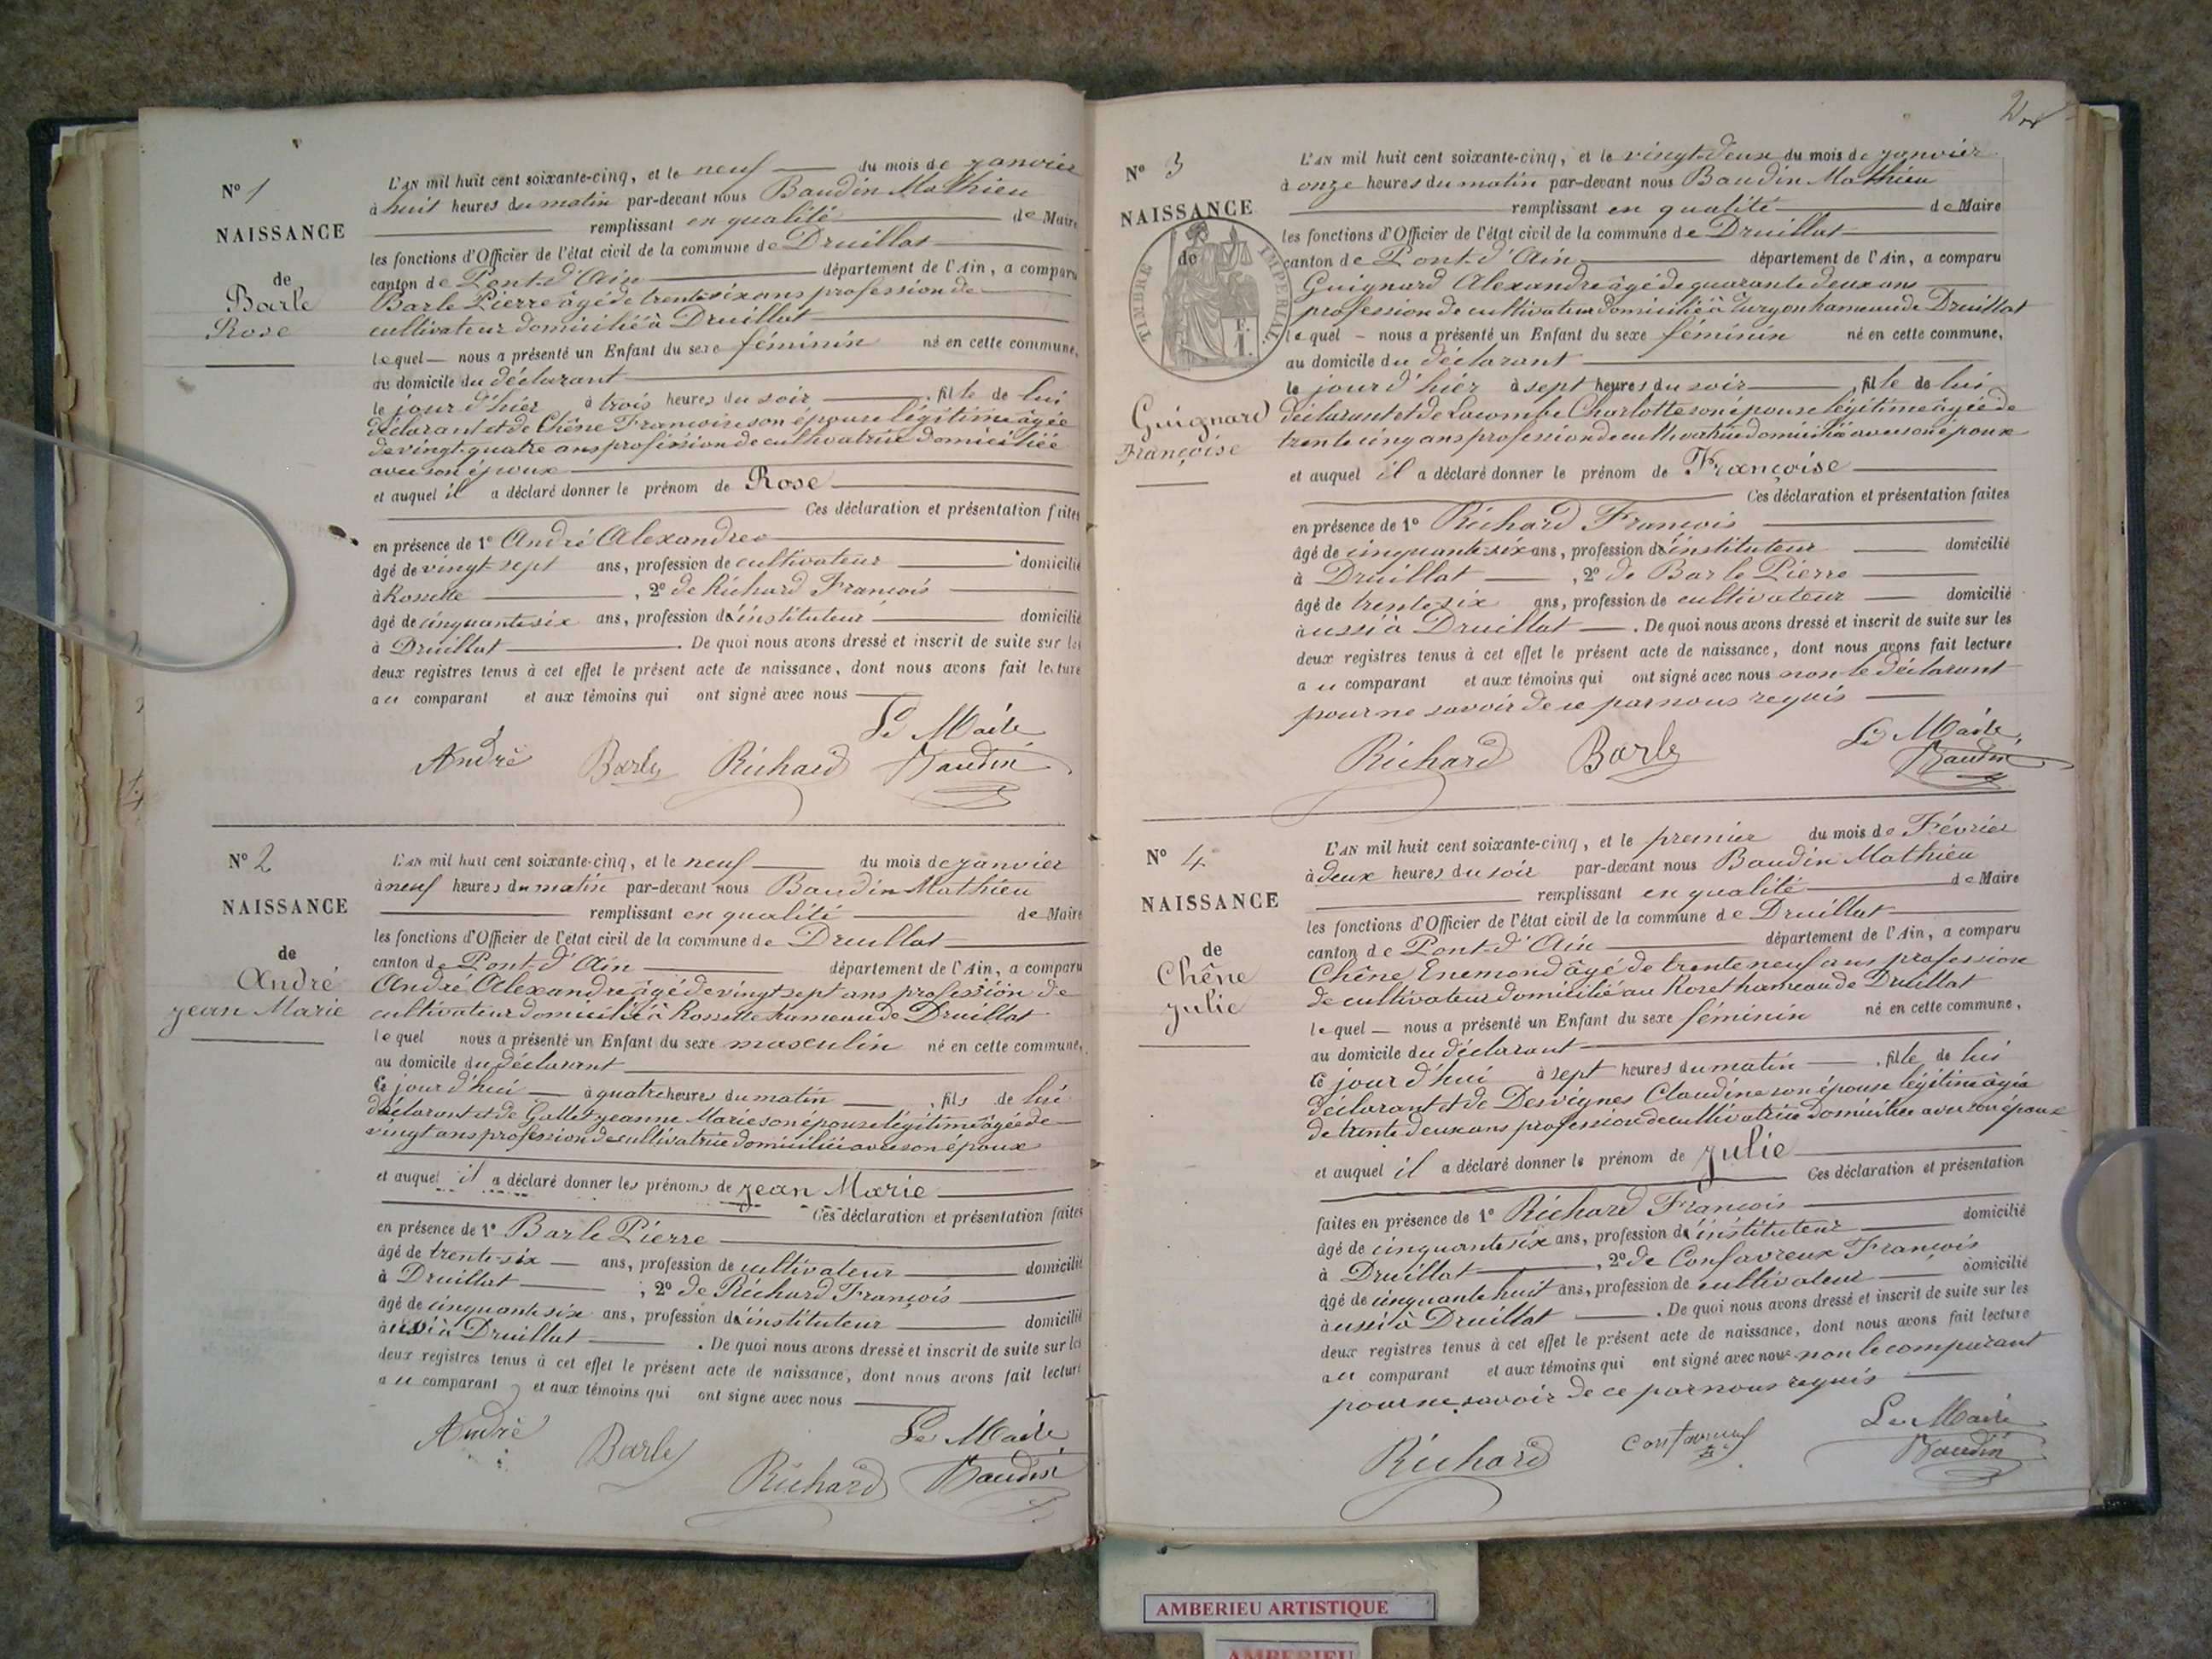 N° 1
NAISSANCE
de
Barle
Rose
L'AN mil huit cent soixante-cinq, et le neuf du mois de janvier
à huit heures du matin par-devant nous Baudin Mathieu
remplissant en qualité de Maire
les fonctions d'Officier de l'état civil de la commune de Druillat
canton de Pont-d'Ain département de l'Ain, a comparu
Barle Pierre âgé de trente six ans profession de
cultivateur domicilié à Druillat
lequel nous a présenté un Enfant du sexe féminin né en cette commune,
au domicile du déclarant
le jour d'hier à trois heures du soir, fille de lui
déclarant et de Chêne Françoise son épouse légitime âgée
de vingt-quatre ans profession de cultivatrice domiciliée
avec son époux
et auquel il a déclaré donner le prénom de Rose
Ces déclaration et présentation faites
en présence de 1° André Alexandre
âgé de vingt-sept ans, profession de cultivateur domicilié
à Rossette, 2° de Richard François
âgé de cinquante six ans, profession d'instituteur domicilié
à Druillat. De quoi nous avons dressé et inscrit de suite sur les
deux registres tenus à cet effet le présent acte de naissance, dont nous avons fait lecture
au comparant et aux témoins qui ont signé avec nous
Le Maire
André Barle Richard Baudin
N° 2
NAISSANCE
de
André
jean Marie
L'AN mil huit cent soixante-cinq, et le neuf du mois de janvier
à neuf heures du matin par-devant nous Baudin Mathieu
remplissant en qualité de Maire
les fonctions d'Officier de l'état civil de la commune de Druillat
canton de Pont-d'Ain département de l'Ain, a comparu
André Alexandre âgé de vingt sept ans profession de
cultivateur domicilié à Rossette hameau de Druillat
lequel nous a présenté un Enfant du sexe masculin né en cette commune,
au domicile du déclarant
ce jour d'hui à quatre heures du matin, fils de lui
déclarant et de Gallet jeanne Marie son épouse légitime âgée de
vingt ans profession de cultivatrice domiciliée avec son époux
et auquel il a déclaré donner les prénoms de jean Marie
Ces déclaration et présentation faites
en présence de 1° Barle Pierre
âgé de trente-six ans, profession de cultivateur domicilié
à Druillat; 2° de Richard François
âgé de cinquante six ans, profession d'instituteur domicilié
aussi à Druillat. De quoi nous avons dressé et inscrit de suite sur les
deux registres tenus à cet effet le présent acte de naissance, dont nous avons fait lecture
au comparant et aux témoins qui ont signé avec nous
André Barle Le Maire
Richard Baudin
N° 3
NAISSANCE
de
TIMBRE IMPÉRIAL
Guignard
Françoise
L'AN mil huit cent soixante-cinq, et le vingt-deux du mois de janvier
à onze heures du matin par-devant nous Baudin Mathieu
remplissant en qualité de Maire
les fonctions d'Officier de l'état civil de la commune de Druillat
canton de Pont-d'Ain département de l'Ain, a comparu
Guignard Alexandre âgé de quarante deux ans
profession de cultivateur domicilié à Turgon hameau de Druillat
lequel nous a présenté un Enfant du sexe féminin né en cette commune,
au domicile du déclarant
le jour d'hier à sept heures du soir, fille de lui
déclarant et de Lacombe Charlotte son épouse légitime âgée de
trente cinq ans profession de cultivatrice domiciliée avec son époux
et auquel il a déclaré donner le prénom de Françoise
Ces déclaration et présentation faites
en présence de 1° Richard François
âgé de cinquante six ans, profession d'instituteur domicilié
à Druillat, 2° de Barle Pierre
âgé de trente six ans, profession de cultivateur domicilié
aussi à Druillat. De quoi nous avons dressé et inscrit de suite sur les
deux registres tenus à cet effet le présent acte de naissance, dont nous avons fait lecture
au comparant et aux témoins qui ont signé avec nous non le déclarant
pour ne savoir de ce par nous requis
Le Maire
Richard Barle Baudin
N° 4
NAISSANCE
de
Chêne
Julie
L'AN mil huit cent soixante-cinq, et le premier du mois de Février
à deux heures du soir par-devant nous Baudin Mathieu
remplissant en qualité de Maire
les fonctions d'Officier de l'état civil de la commune de Druillat
canton de Pont-d'Ain département de l'Ain, a comparu
Chêne Enemond âgé de trente neuf ans profession
de cultivateur domicilié au Roset hameau de Druillat
lequel nous a présenté un Enfant du sexe féminin né en cette commune,
au domicile du déclarant
ce jour d'hui à sept heures du matin, fille de lui
déclarant et de Desvignes Claudine son épouse légitime âgée
de trente deux ans profession de cultivatrice domiciliée avec son époux
et auquel il a déclaré donner le prénom de Julie
Ces déclaration et présentation
faites en présence de 1° Richard François
âgé de cinquante six ans, profession d'instituteur domicilié
à Druillat, 2° de Confavreux François
âgé de cinquante huit ans, profession de cultivateur domicilié
aussi à Druillat. De quoi nous avons dressé et inscrit de suite sur les
deux registres tenus à cet effet le présent acte de naissance, dont nous avons fait lecture
au comparant et aux témoins qui ont signé avec nous non le comparant
pour ne savoir de ce par nous requis
Le Maire
Richard Confavreux Baudin
AMBERIEU ARTISTIQUE
AMBERIEU